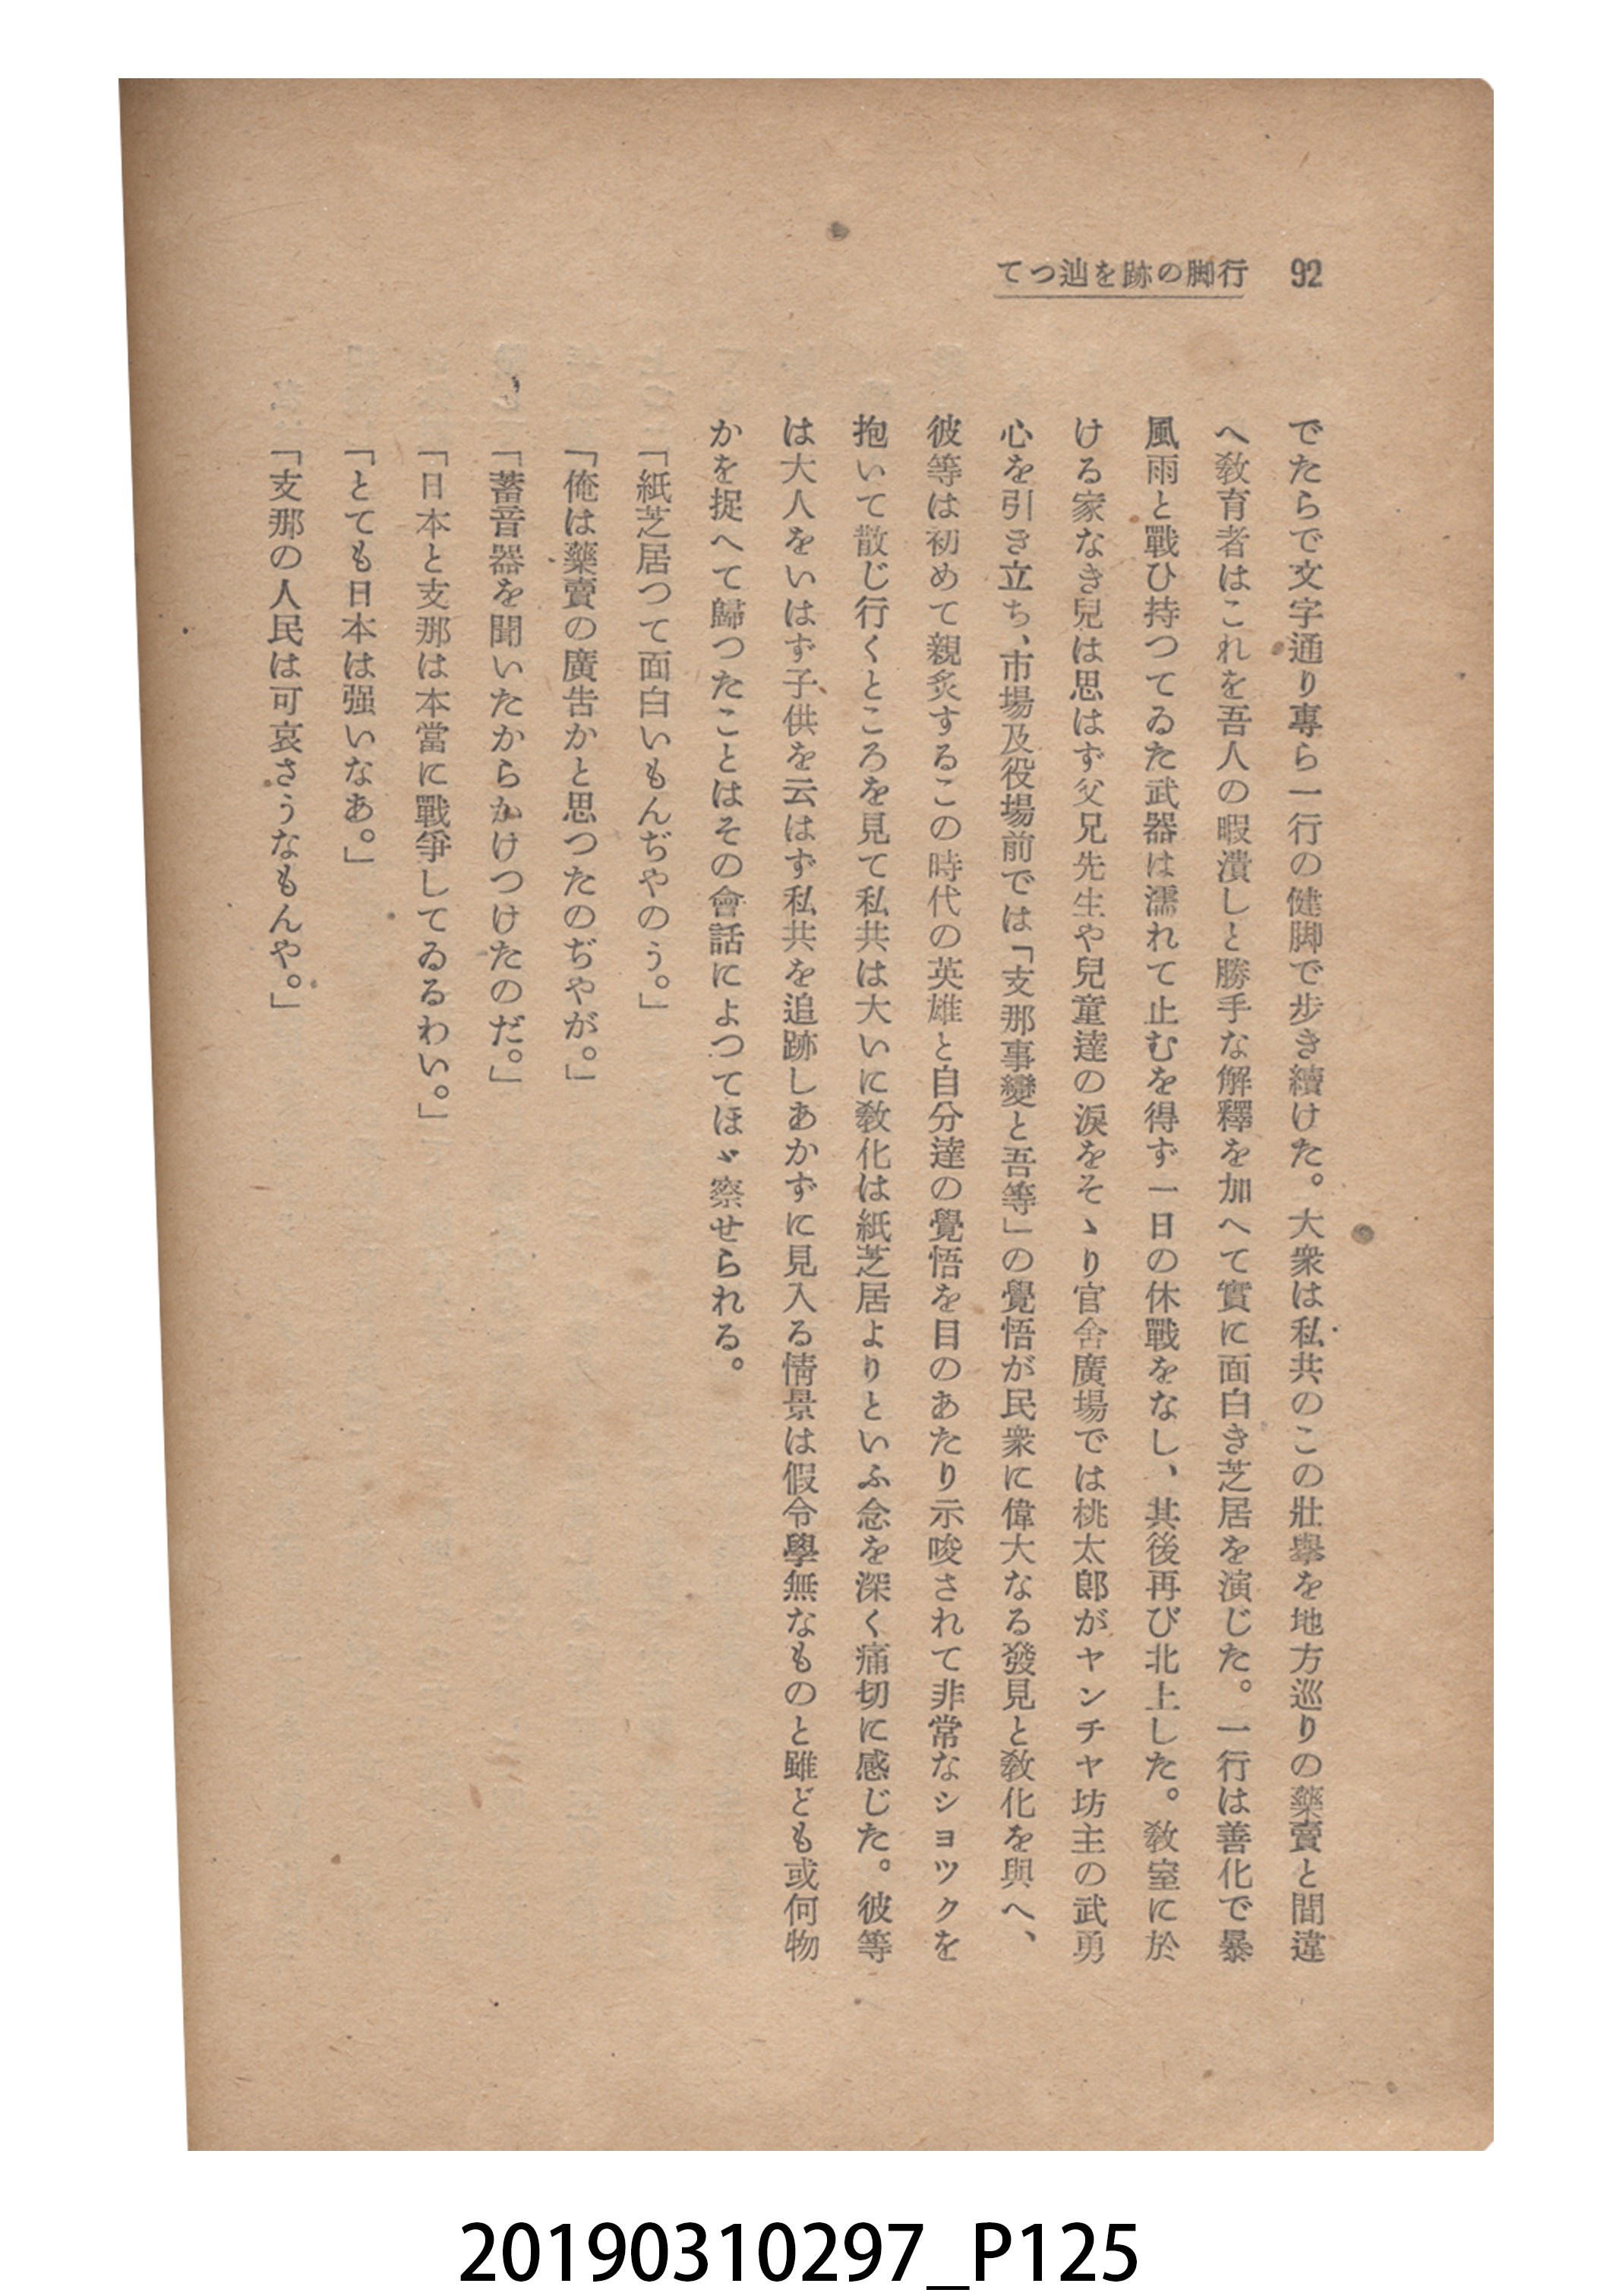 92
てつ辿を跡の脚行
でたらで文字通り專ら一行の健脚で步き續けた。大衆は私共のこの壯擧を地方巡りの藥賣と間違
へ敎育者はこれを吾人の暇潰しと勝手な解釋を加へて實に面白き芝居を演じた。一行は善化で暴
風雨と戰ひ持つてゐた武器は濡れて止むを得ず一日の休戰をなし、其後再び北上した。敎室に於
ける家なき兒は思はず父兄先生や兒童達の淚をそゝり官舍廣場では桃太郞がヤンチヤ坊主の武勇
心を引き立ち、市場及役場前では「支那事變と吾等」の覺悟が民衆に偉大なる發見と敎化を與へ、
彼等は初めて親炙するこの時代の英雄と自分達の覺悟を目のあたり示唆されて非常なシヨツクを
抱いて散じ行くところを見て私共は大いに敎化は紙芝居よりといふ念を深く痛切に感じた。彼等
は大人をいはず子供を云はず私共を追跡しあかずに見入る情景は假令學無なものと雖ども或何物
かを捉へて歸つたことはその會話によつてほゞ察せられる。
「紙芝居つて面白いもんぢやのう。」
「俺は藥賣の廣告かと思つたのぢやが。」
「蓄音器を聞いたからかけつけたのだ。」
「日本と支那は本當に戰爭してゐるわい。」
「とても日本は强いなあ。」
「支那の人民は可哀さうなもんや。」
20190310297_P125